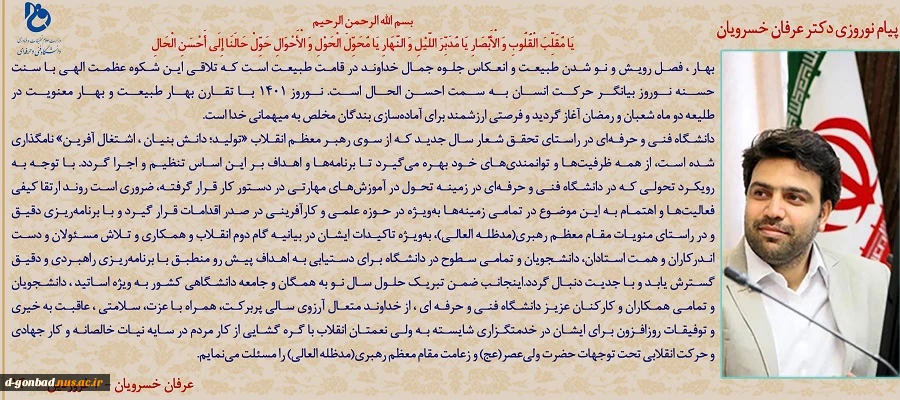 پیام نوروزی دکتر عرفان خسرویان
بسم الله الرحمن الرحیم
یَا مُقَلِّبَ الْقُلُوبِ وَ الْأَبْصَارِ یَا مُدَبِّرَ اللَّیْلِ وَ النَّهَارِ یَا مُحَوِّلَ الْحَوْلِ وَ الْأَحْوَالِ حَوِّلْ حَالَنَا إِلَى أَحْسَنِ الْحَالِ
بهار ، فصل رویش و نو شدن طبیعت و انعکاس جلوه جمال خداوند در قامت طبیعت است که تلاقی این شکوه عظمت الهی با سنت
حسنه نوروز بیانگر حرکت انسان به سمت احسن الحال است. نوروز ۱۴۰۱ با تقارن بهار طبیعت و بهار معنویت در
طلیعه دو ماه شعبان و رمضان آغاز گردید و فرصتی ارزشمند برای آماده‌سازی بندگان مخلص به میهمانی خدا است.
دانشگاه فنی و حرفه‌ای در راستای تحقق شعار سال جدید که از سوی رهبر معظم انقلاب «تولید؛ دانش بنیان ، اشتغال آفرین» نامگذاری
شده است، از همه ظرفیت‌ها و توانمندی‌های خود بهره می‌گیرد تا برنامه‌ها و اهداف بر این اساس تنظیم و اجرا گردد. با توجه به
رویکرد تحولی که در دانشگاه فنی و حرفه‌ای در زمینه تحول در آموزش‌های مهارتی در دستور کار قرار گرفته، ضروری است روند ارتقا کیفی
فعالیت‌ها و اهتمام به این موضوع در تمامی زمینه‌ها به‌ویژه در حوزه علمی و کارآفرینی در صدر اقدامات قرار گیرد و با برنامه‌ریزی دقیق
و در راستای منویات مقام معظم رهبری(مدظله العالی)، به‌ویژه تاکیدات ایشان در بیانیه گام دوم انقلاب و همکاری و تلاش مسئولان و دست
اندرکاران و همت استادان، دانشجویان و تمامی سطوح در دانشگاه برای دستیابی به اهداف پیش رو منطبق با برنامه‌ریزی راهبردی و دقیق
گسترش یابد و با جدیت دنبال گردد.اینجانب ضمن تبریک حلول سال نو به همگان و جامعه دانشگاهی کشور به ویژه اساتید ، دانشجویان
و تمامی همکاران و کارکنان عزیز دانشگاه فنی و حرفه ای ، از خداوند متعال آرزوی سالی پربرکت، همراه با عزت، سلامتی ، عاقبت به خیری
و توفیقات روزافزون برای ایشان در خدمتگزاری شایسته به ولی نعمتان انقلاب با گره گشایی از کار مردم در سایه نیات خالصانه و کار جهادی
و حرکت انقلابی تحت توجهات حضرت ولی‌عصر(عج) و زعامت مقام معظم رهبری(مدظله العالی) را مسئلت می‌نمایم.
عرفان خسرویان –
d-gonbad.nus.ac.ir